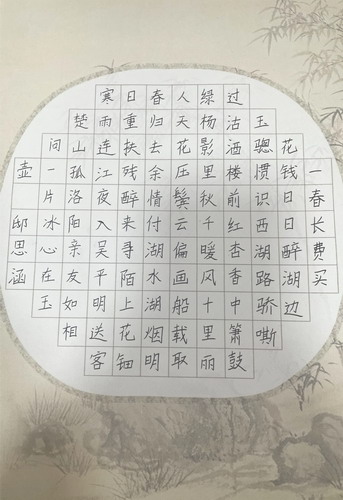 一春长费买
花钱日日醉湖边
玉骢惯识西湖路骄嘶
过沽洒楼前红杏香中箫鼓
绿杨影里秋千暖风十里丽
人天花压鬓云偏画船载取
春归去余情付湖水湖烟明
日重扶残醉来寻陌上花钿
寒雨连江夜入吴平明送客
楚山孤洛阳亲友如相
问一片冰心在玉
壶 邸思涵